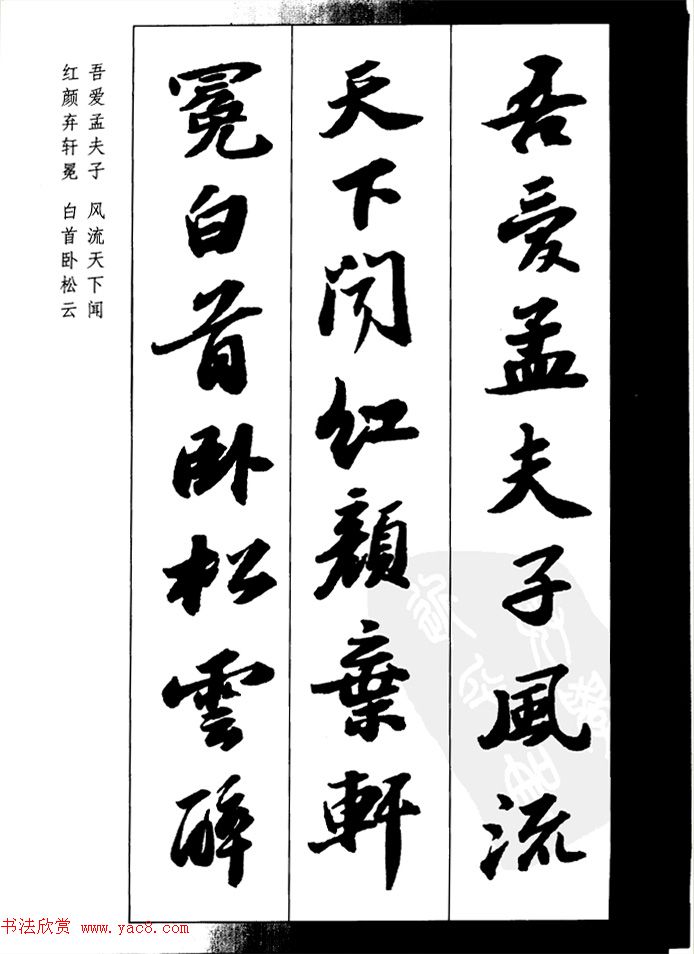 吾愛孟夫子風流
天下聞紅顏棄軒
冕白首卧松雲醉
吾爱孟夫子 风流天下闻
红颜弃轩冕 白首卧松云
书法欣赏 www.yac8.com